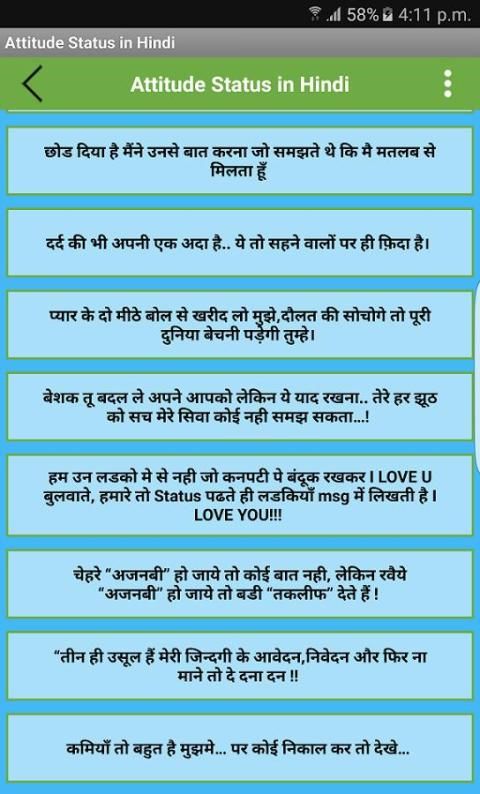 58% 4:11 p.m.
Attitude Status in Hindi
Attitude Status in Hindi
छोड दिया है मैंने उनसे बात करना जो समझते थे कि मै मतलब से
मिलता हूँ
दर्द की भी अपनी एक अदा है.. ये तो सहने वालों पर ही फ़िदा है।
प्यार के दो मीठे बोल से खरीद लो मुझे,दौलत की सोचोगे तो पूरी
दुनिया बेचनी पड़ेगी तुम्हे।
बेशक तू बदल ले अपने आपको लेकिन ये याद रखना.. तेरे हर झूठ
को सच मेरे सिवा कोई नही समझ सकता...!
हम उन लडको मे से नही जो कनपटी पे बंदूक रखकर I LOVE U
बुलवाते, हमारे तो Status पढते ही लडकियाँ msg में लिखती है I
LOVE YOU!!!
चेहरे “अजनबी” हो जाये तो कोई बात नही, लेकिन रवैये
“अजनबी” हो जाये तो बडी “तकलीफ” देते हैं !
“तीन ही उसूल हैं मेरी जिन्दगी के आवेदन,निवेदन और फिर ना
माने तो दे दना दन !!
कमियाँ तो बहुत है मुझमे... पर कोई निकाल कर तो देखे...